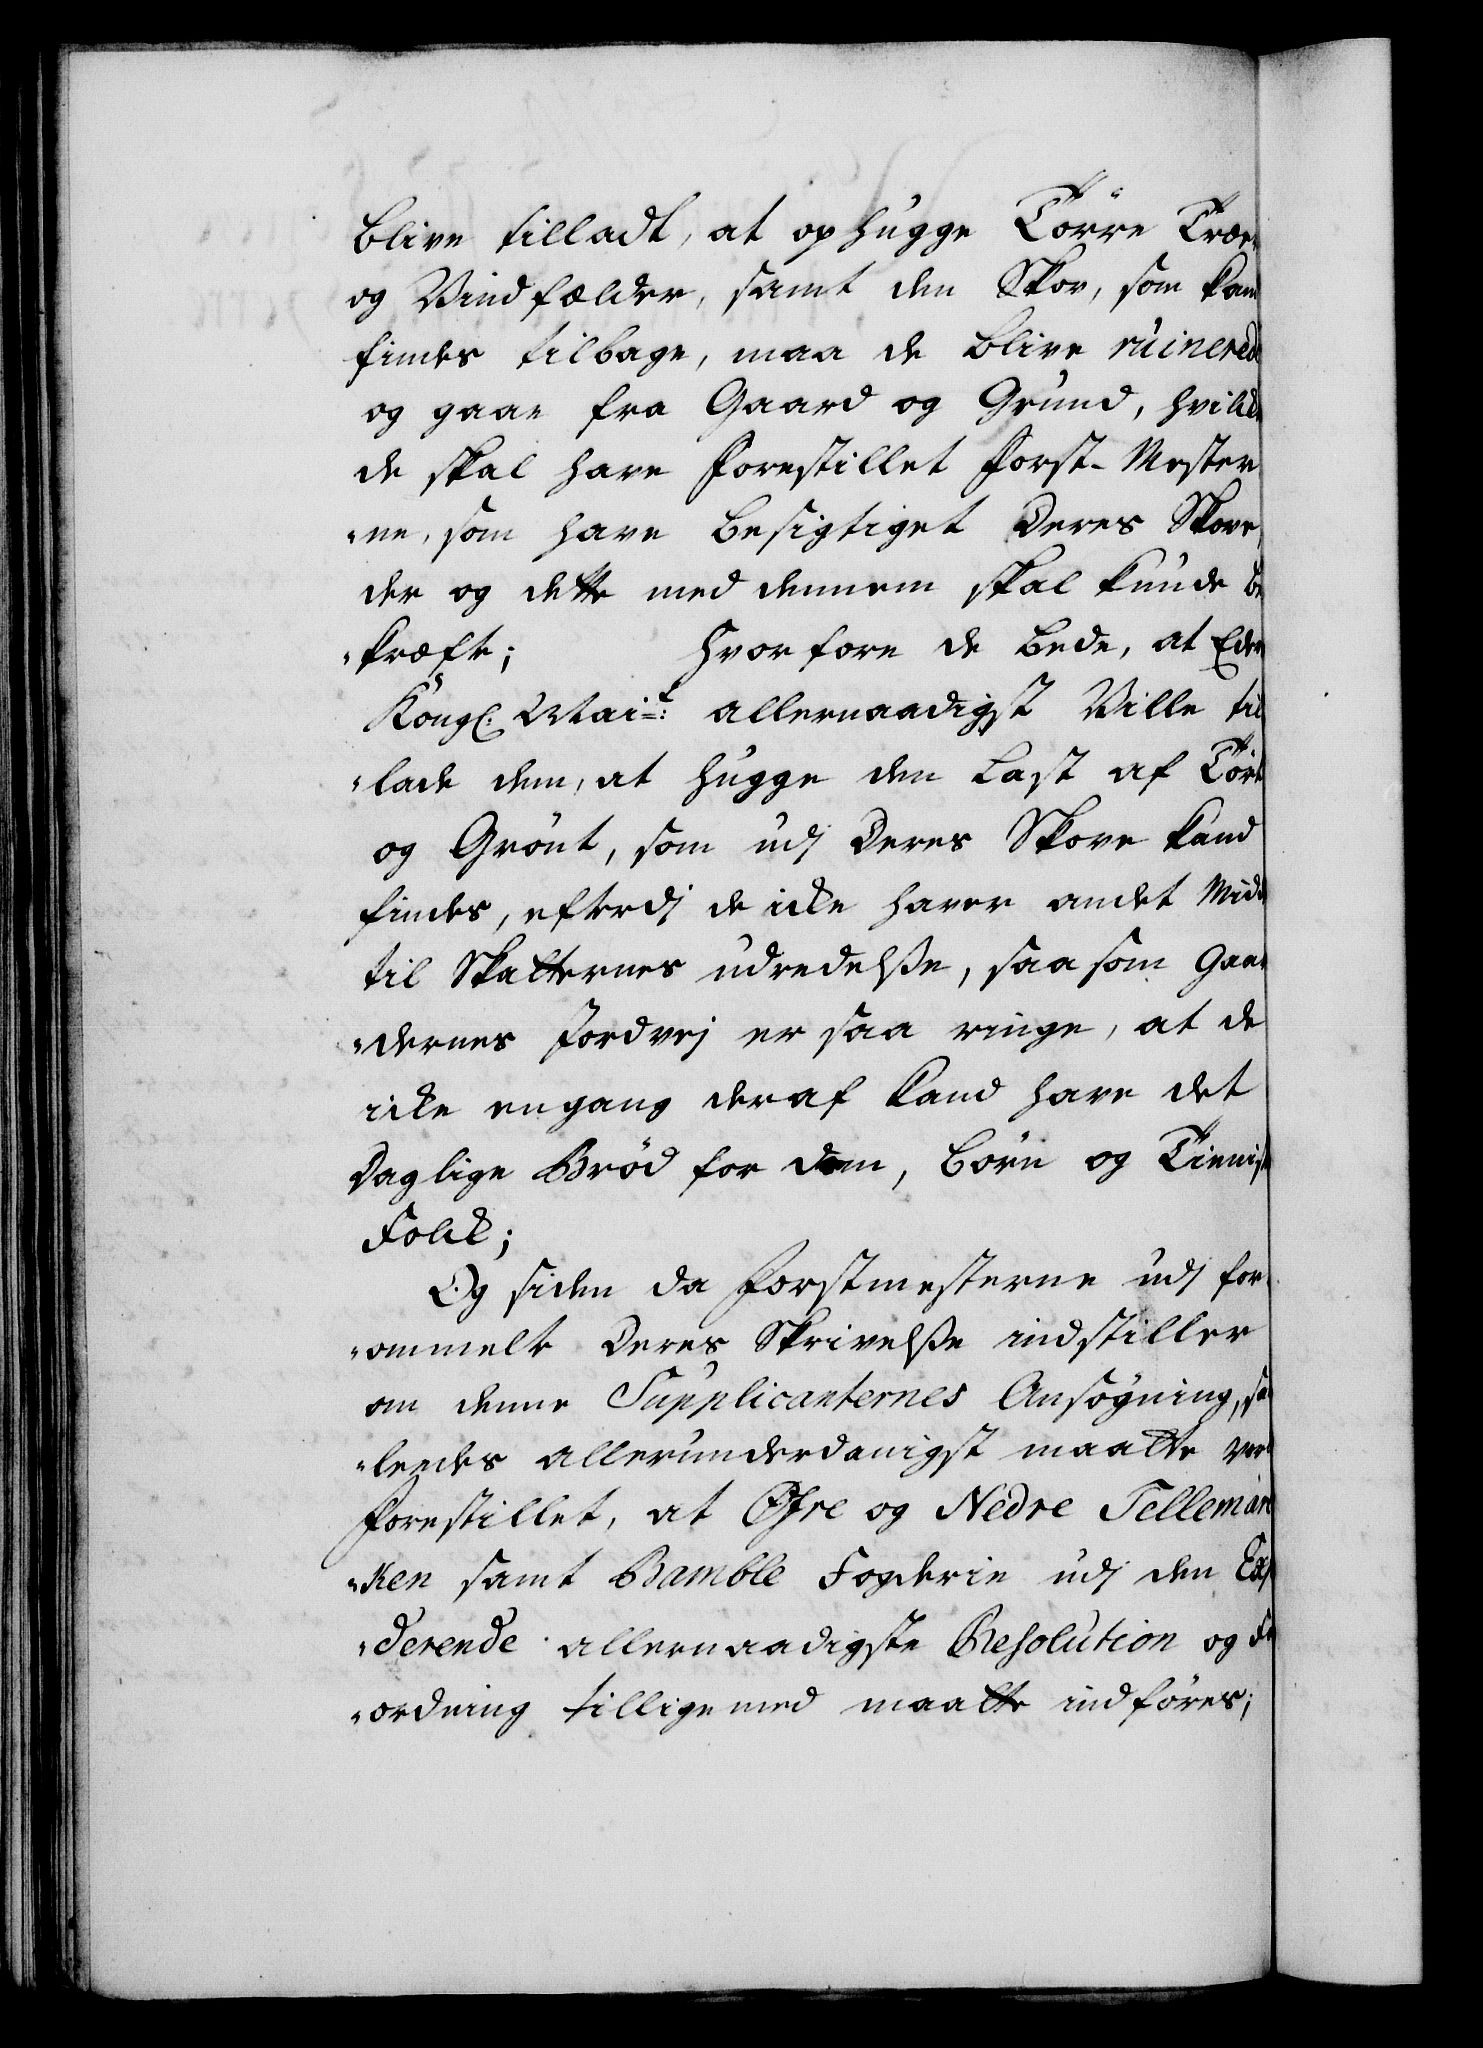 blive tilladt, at ophugge Törre Træer
og Vindfælder, samt den Skov, som kand
findes tilbage, maa de blive ruinerede
og gaae fra Gaard og Grund, hvilket
de skal have forestillet Forst-Mester
"ne, som have besigtiget Deres Skove,
der og dette med dennem skal kunde be
"kræfte; Hvorfore de bede, at Eders
Kongl. Mai:t allernaadigst Ville til
"lade dem, at hugge den Last af Tørt
og Grönt, som udj Deres Skove kand
findes, efterdj de icke haver andet Middel
til Skatternes udredelsse, saasom Gaar
"dernes Jordvej er saa ringe, at de
icke engang deraf kand have det
Daglige Brød for dem, Börn og Tienniste
Folck;
Og siden da Forstmesterne udj for
"ommelte Deres Skrivelsse indstiller
om denne Supplicanternes Ansøgning, saa
"ledes allerunderdanigst maatte vorde
forestillet, at Øfre og Nedre Tellemar
"ken samt Bamble Fogderie udj den Ex
"derende allernaadigste Resolution og For
"ordning tilligemed maatte indföres;